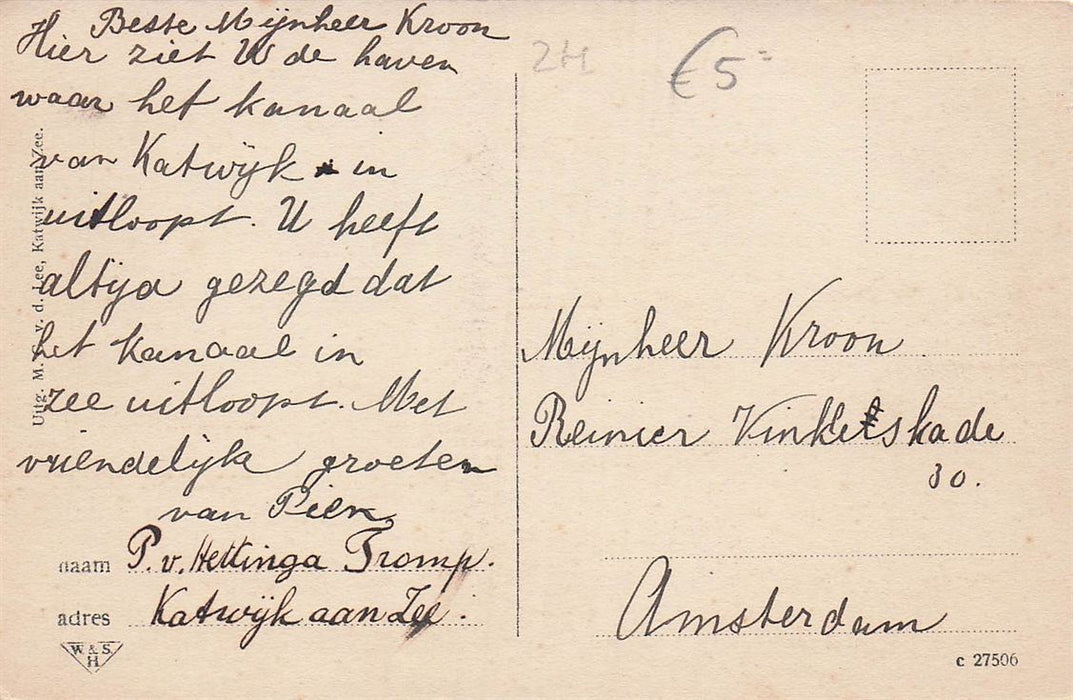 Beste Mijnheer Kroon
Hier ziet U de haven
waar het kanaal
van Katwijk in
uitloopt. U heeft
altijd gezegd dat
het kanaal in
zee uitloopt. Met
vriendelijk groeten
van Pien
naam P. v. Hettinga Tromp.
adres Katwijk aan Zee.
W & S.
H
Uitg. M. v. d. Lee, Katwijk aan Zee.
€5=
Mijnheer Kroon
Reinier Vinkelskade
30.
Amsterdam
c 27506